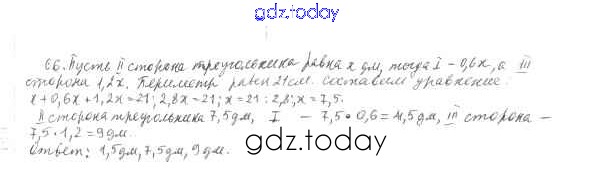 gdz.today
66. Пусть II сторона треугольника равна x дм, тогда I – 0,6x, а III
сторона 1,2x. Периметр равен 21 см. Составим уравнение:
x+0,6x+1,2x=21; 2,8x=21; x=21:2,8; x=7,5.
II сторона треугольника 7,5 дм, I – 7,5•0,6=4,5 дм, III сторона –
7,5•1,2=9 дм.
gdz.today
Ответ: 1,5 дм, 7,5 дм, 9 дм.